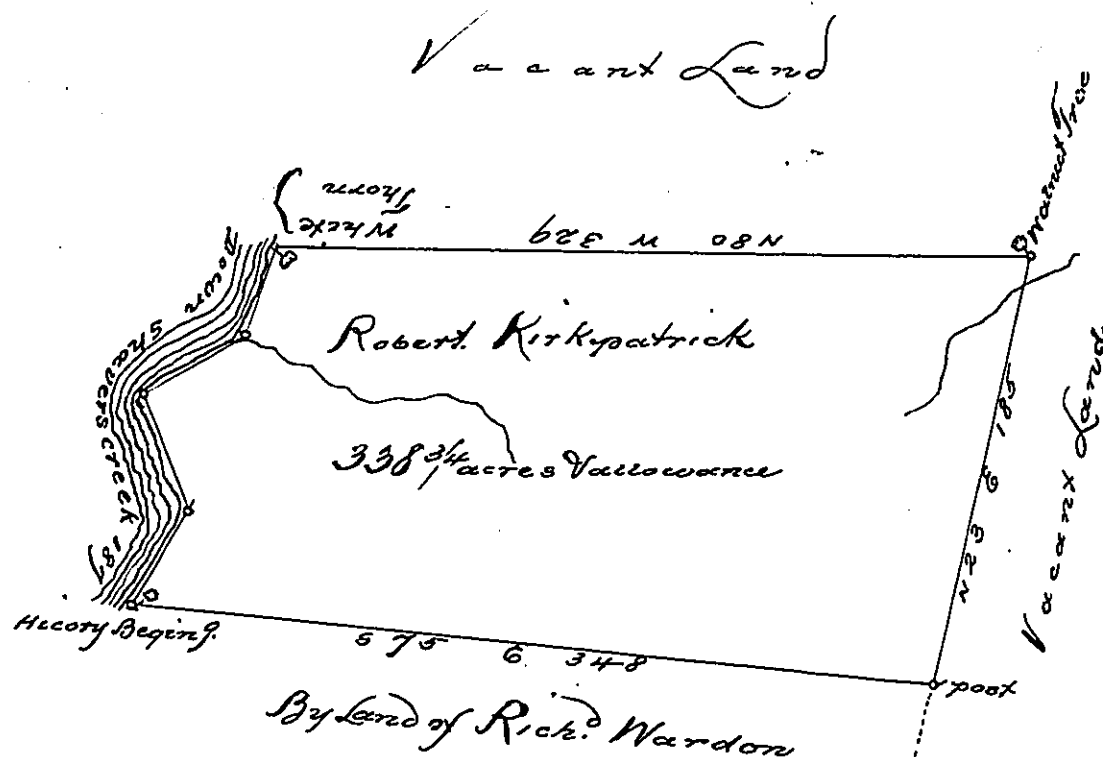 Vacant Land
White
Thorn
N80 W 329
Walnut Tree
Down
Shavers creek 187
Robert Kirkpatrick
338 3/4 acres & allowance
N 23 E 185
Vacant Land
Hicory Begining.
S 75 E 348
post
By Land of Richd Wardon